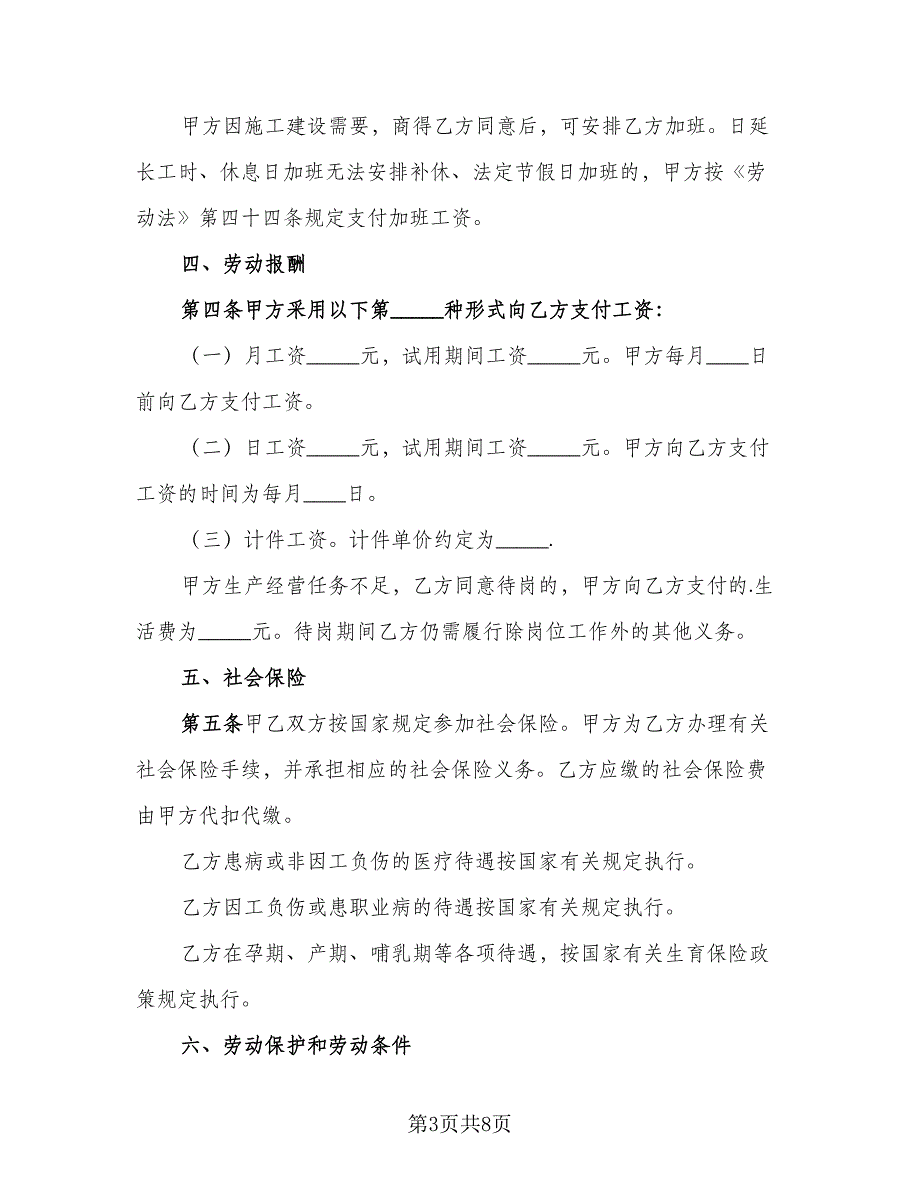 甲方因施工建设需要，商得乙方同意后，可安排乙方加班。日延
长工时、休息日加班无法安排补休、法定节假日加班的，甲方按《劳
动法》第四十四条规定支付加班工资。
四、劳动报酬
第四条甲方采用以下第_____种形式向乙方支付工资：
（一）月工资_____元，试用期间工资_____元。甲方每月____日
前向乙方支付工资。
（二）日工资_____元，试用期间工资_____元。甲方向乙方支付
工资的时间为每月____日。
（三）计件工资。计件单价约定为_____.
甲方生产经营任务不足，乙方同意待岗的，甲方向乙方支付的.生
活费为_____元。待岗期间乙方仍需履行除岗位工作外的其他义务。
五、社会保险
第五条甲乙双方按国家规定参加社会保险。甲方为乙方办理有关
社会保险手续，并承担相应的社会保险义务。乙方应缴的社会保险费
由甲方代扣代缴。
乙方患病或非因工负伤的医疗待遇按国家有关规定执行。
乙方因工负伤或患职业病的待遇按国家有关规定执行。
乙方在孕期、产期、哺乳期等各项待遇，按国家有关生育保险政
策规定执行。
六、劳动保护和劳动条件
第3页共8页